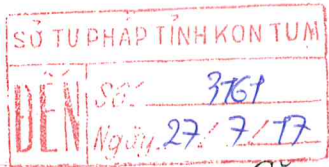 SỞ TƯ PHÁP TỈNH KON TUM
ĐẾN
Số: 3761
Ngày 27/7/17